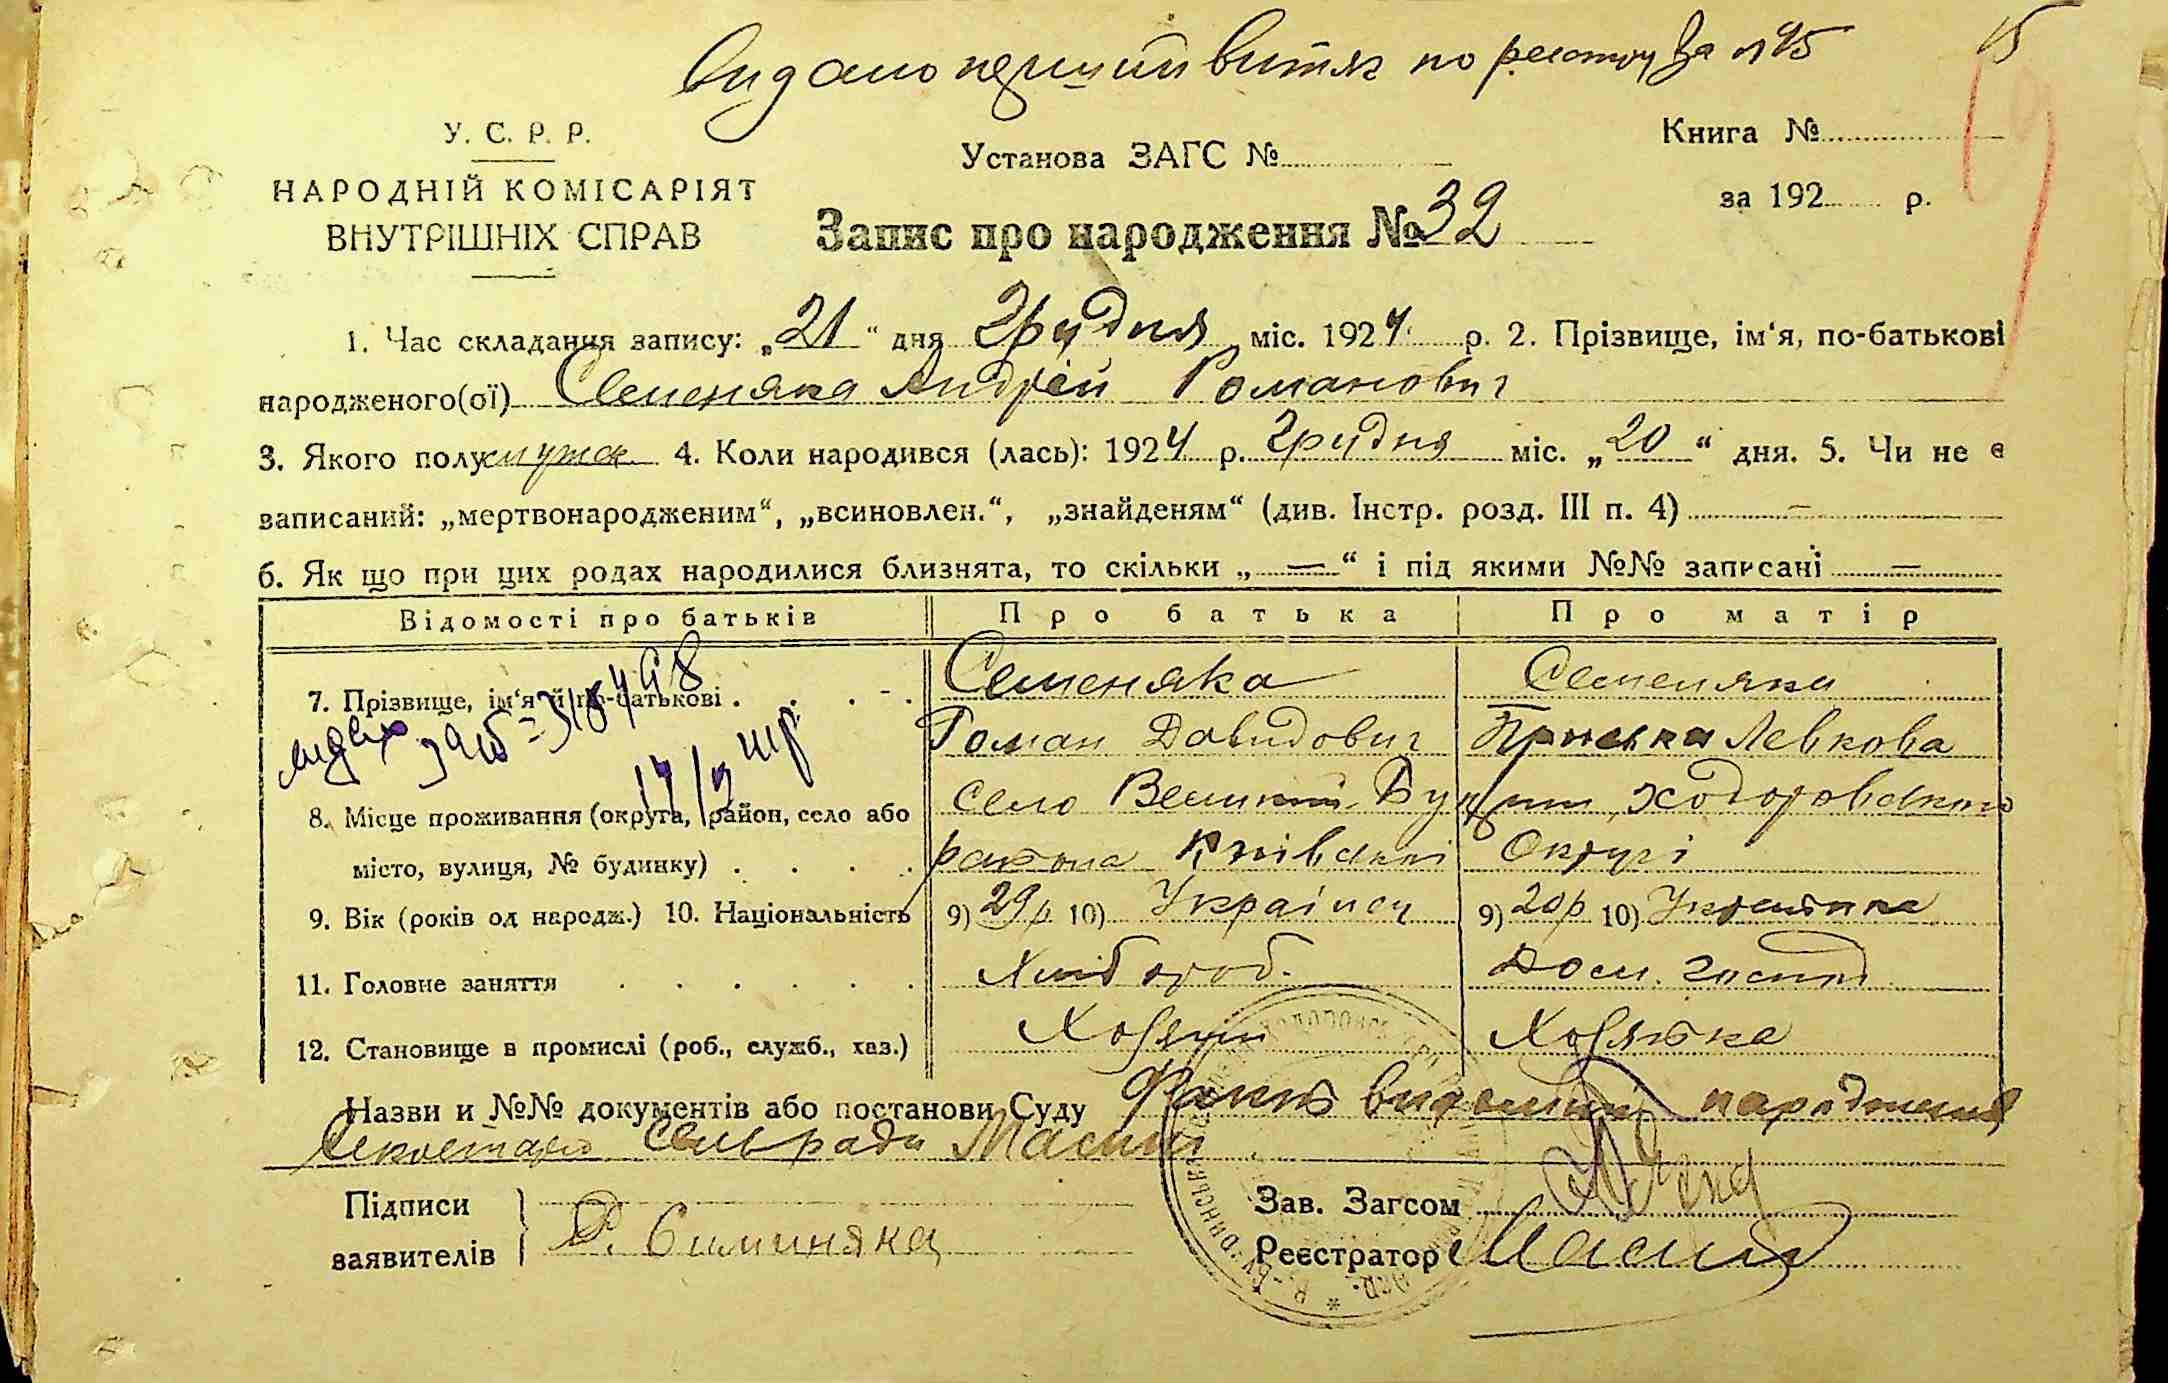 Видано перший витяг по реєстру за №95
15
У. С. Р. Р.
НАРОДНІЙ КОМІСАРІЯТ
ВНУТРІШНІХ СПРАВ
Установа ЗАГС №
Книга №
за 192 р.
Запис про народження № 32
1. Час складання запису: „21“ дня Грудня міс. 1924 р. 2. Прізвище, ім‘я, по-батькові
народженого(ої) Семеняка Андрій Романович
3. Якого полу мужск 4. Коли народився (лась): 1924 р. Грудня міс. „20“ дня. 5. Чи не є
записаний: „мертвонародженим“, „всиновлен.“, „знайденям“ (див. Інстр. розд. III п. 4) —
6. Як що при цих родах народилися близнята, то скільки „—“ і під якими №№ записані —
Відомості про батьків Про батька Про матір
7. Прізвище, ім‘я й по-батькові . . . . Семеняка Семеняка
Роман Давидович Приська Левкова
8. Місце проживання (округа, район, село або село Великий Букрин, Ходоровського
місто, вулиця, № будинку) . . . . района Київської Округі
9. Вік (років од народж.) 10. Національність 9) 29р 10) Українец 9) 20р 10) Українка
11. Головне заняття . . . . . . Хлібороб. Дом. господ
12. Становище в промислі (роб., служб., хаз.) Хозяин Хозяйка
Назви и №№ документів або постанови Суду народження
Секретарю сельради Масий
Підписи
заявителів Р. Симиняка
Зав. Загсом
Реєстратор Масий